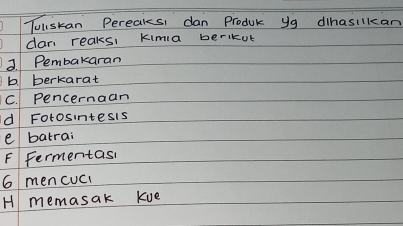 Tuliskan Pereaksi dan Produk yg dihasilkan
dari reaksi kimia berikut
a. Pembakaran
b. berkarat
C. Pencernaan
d Fotosintesis
e batrai
F Fermentasi
G mencuci
H memasak kue